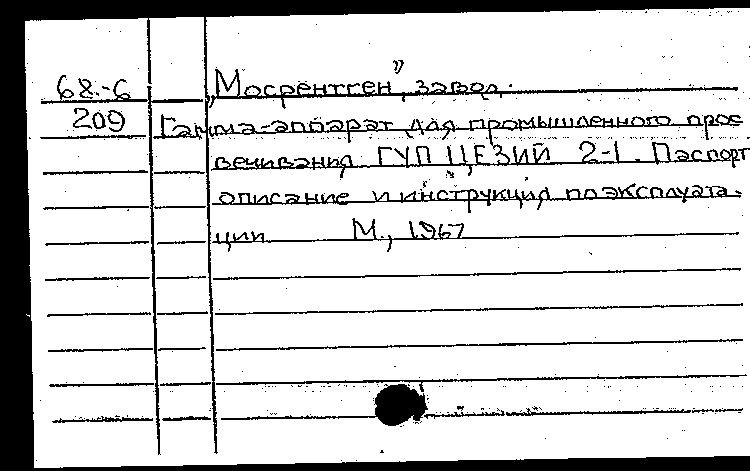 68.-6 „Мосрентген", завод.
209 Гамма-аппарат для промышленного прос
вечивания ГУП ЦЕЗИЙ 2-1. Паспорт
описание и инструкция по эксплуата-
ции М., 1967